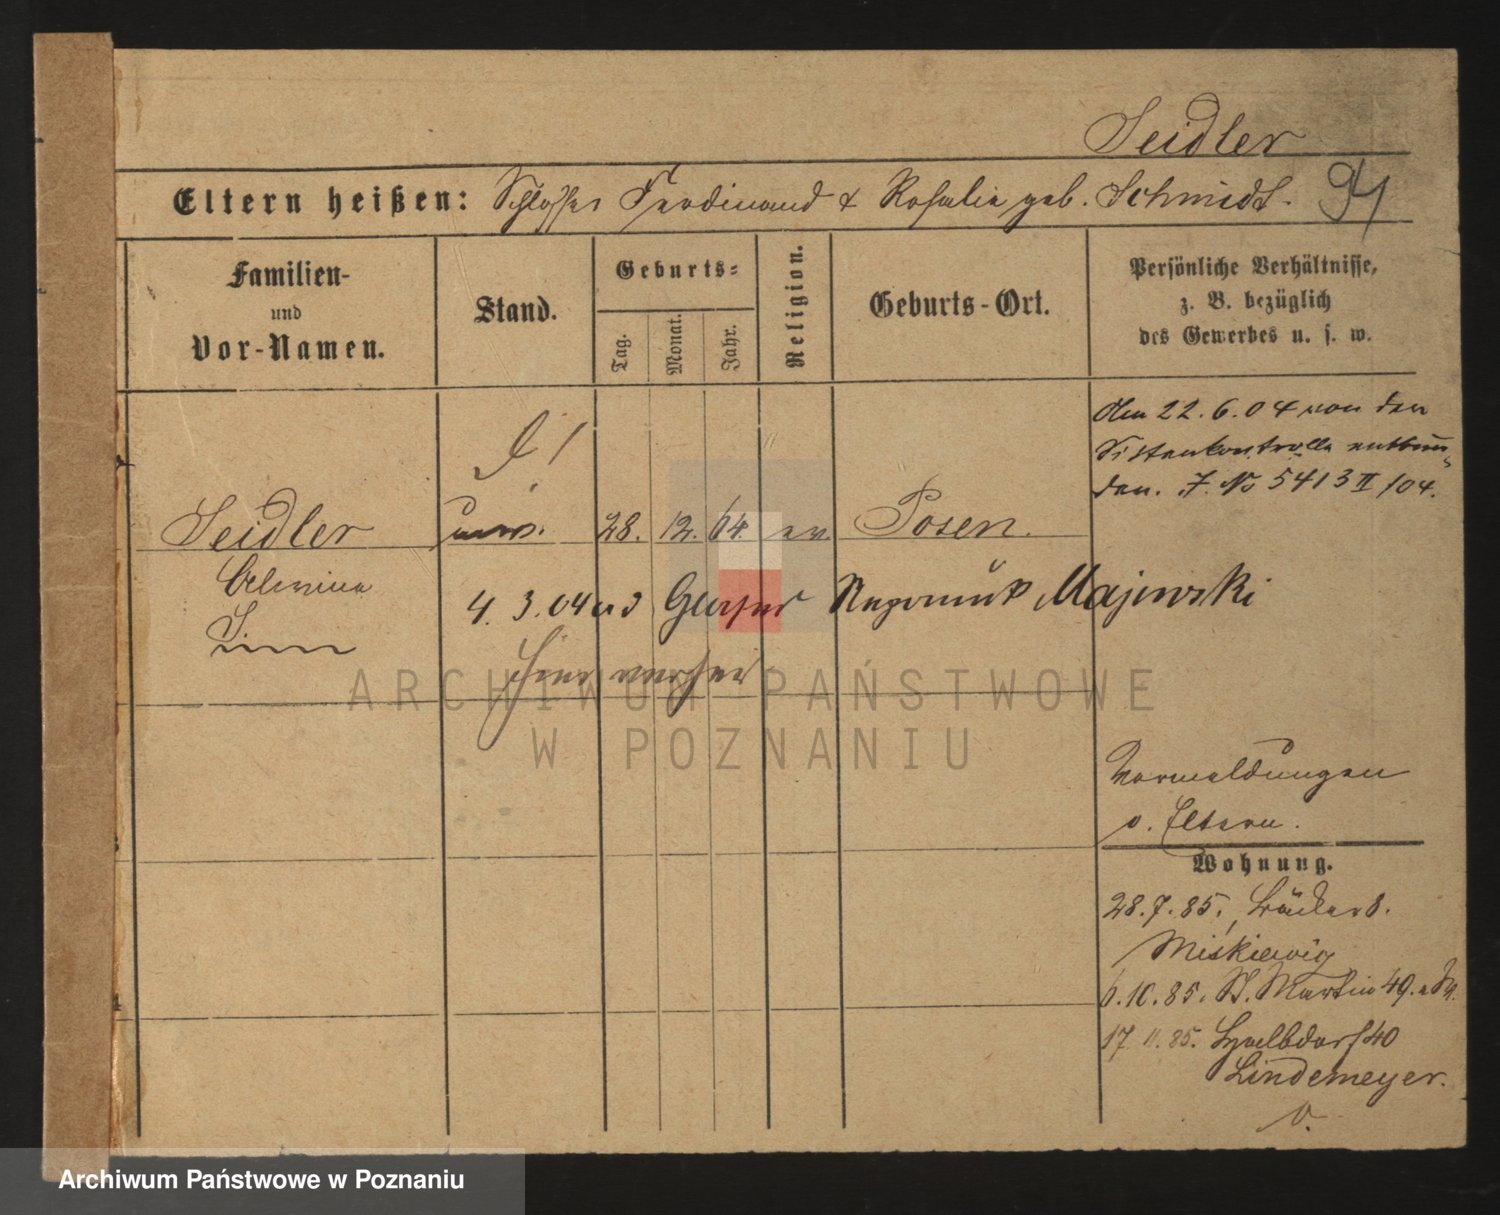 Seidler
Eltern heißen: Schlosser Ferdinand & Rosalie geb. Schmidt. 94
Familien-
und
Vor-Namen.
Stand.
Geburts-
Tag.
Monat.
Jahr.
Religion.
Geburts-Ort.
Persönliche Verhältnisse,
z. B. bezüglich
des Gewerbes u. s. w.
Am 22.6.04 von der
Sittenkontrolle entbun-
den. J. No 5413 II/04.
Seidler unv. 28. 12. 64. ev. Posen.
4.3.04 Nepomuk Majewski
ARCHIWUM PAŃSTWOWE
W POZNANIU
Vormeldungen
v. Eltern.
Wohnung.
28.7.85, Bäckers.
6.10.85. St. Martin 49.
17.11.85. Halbdorf 40
Lindemeyer.
v.
Archiwum Państwowe w Poznaniu